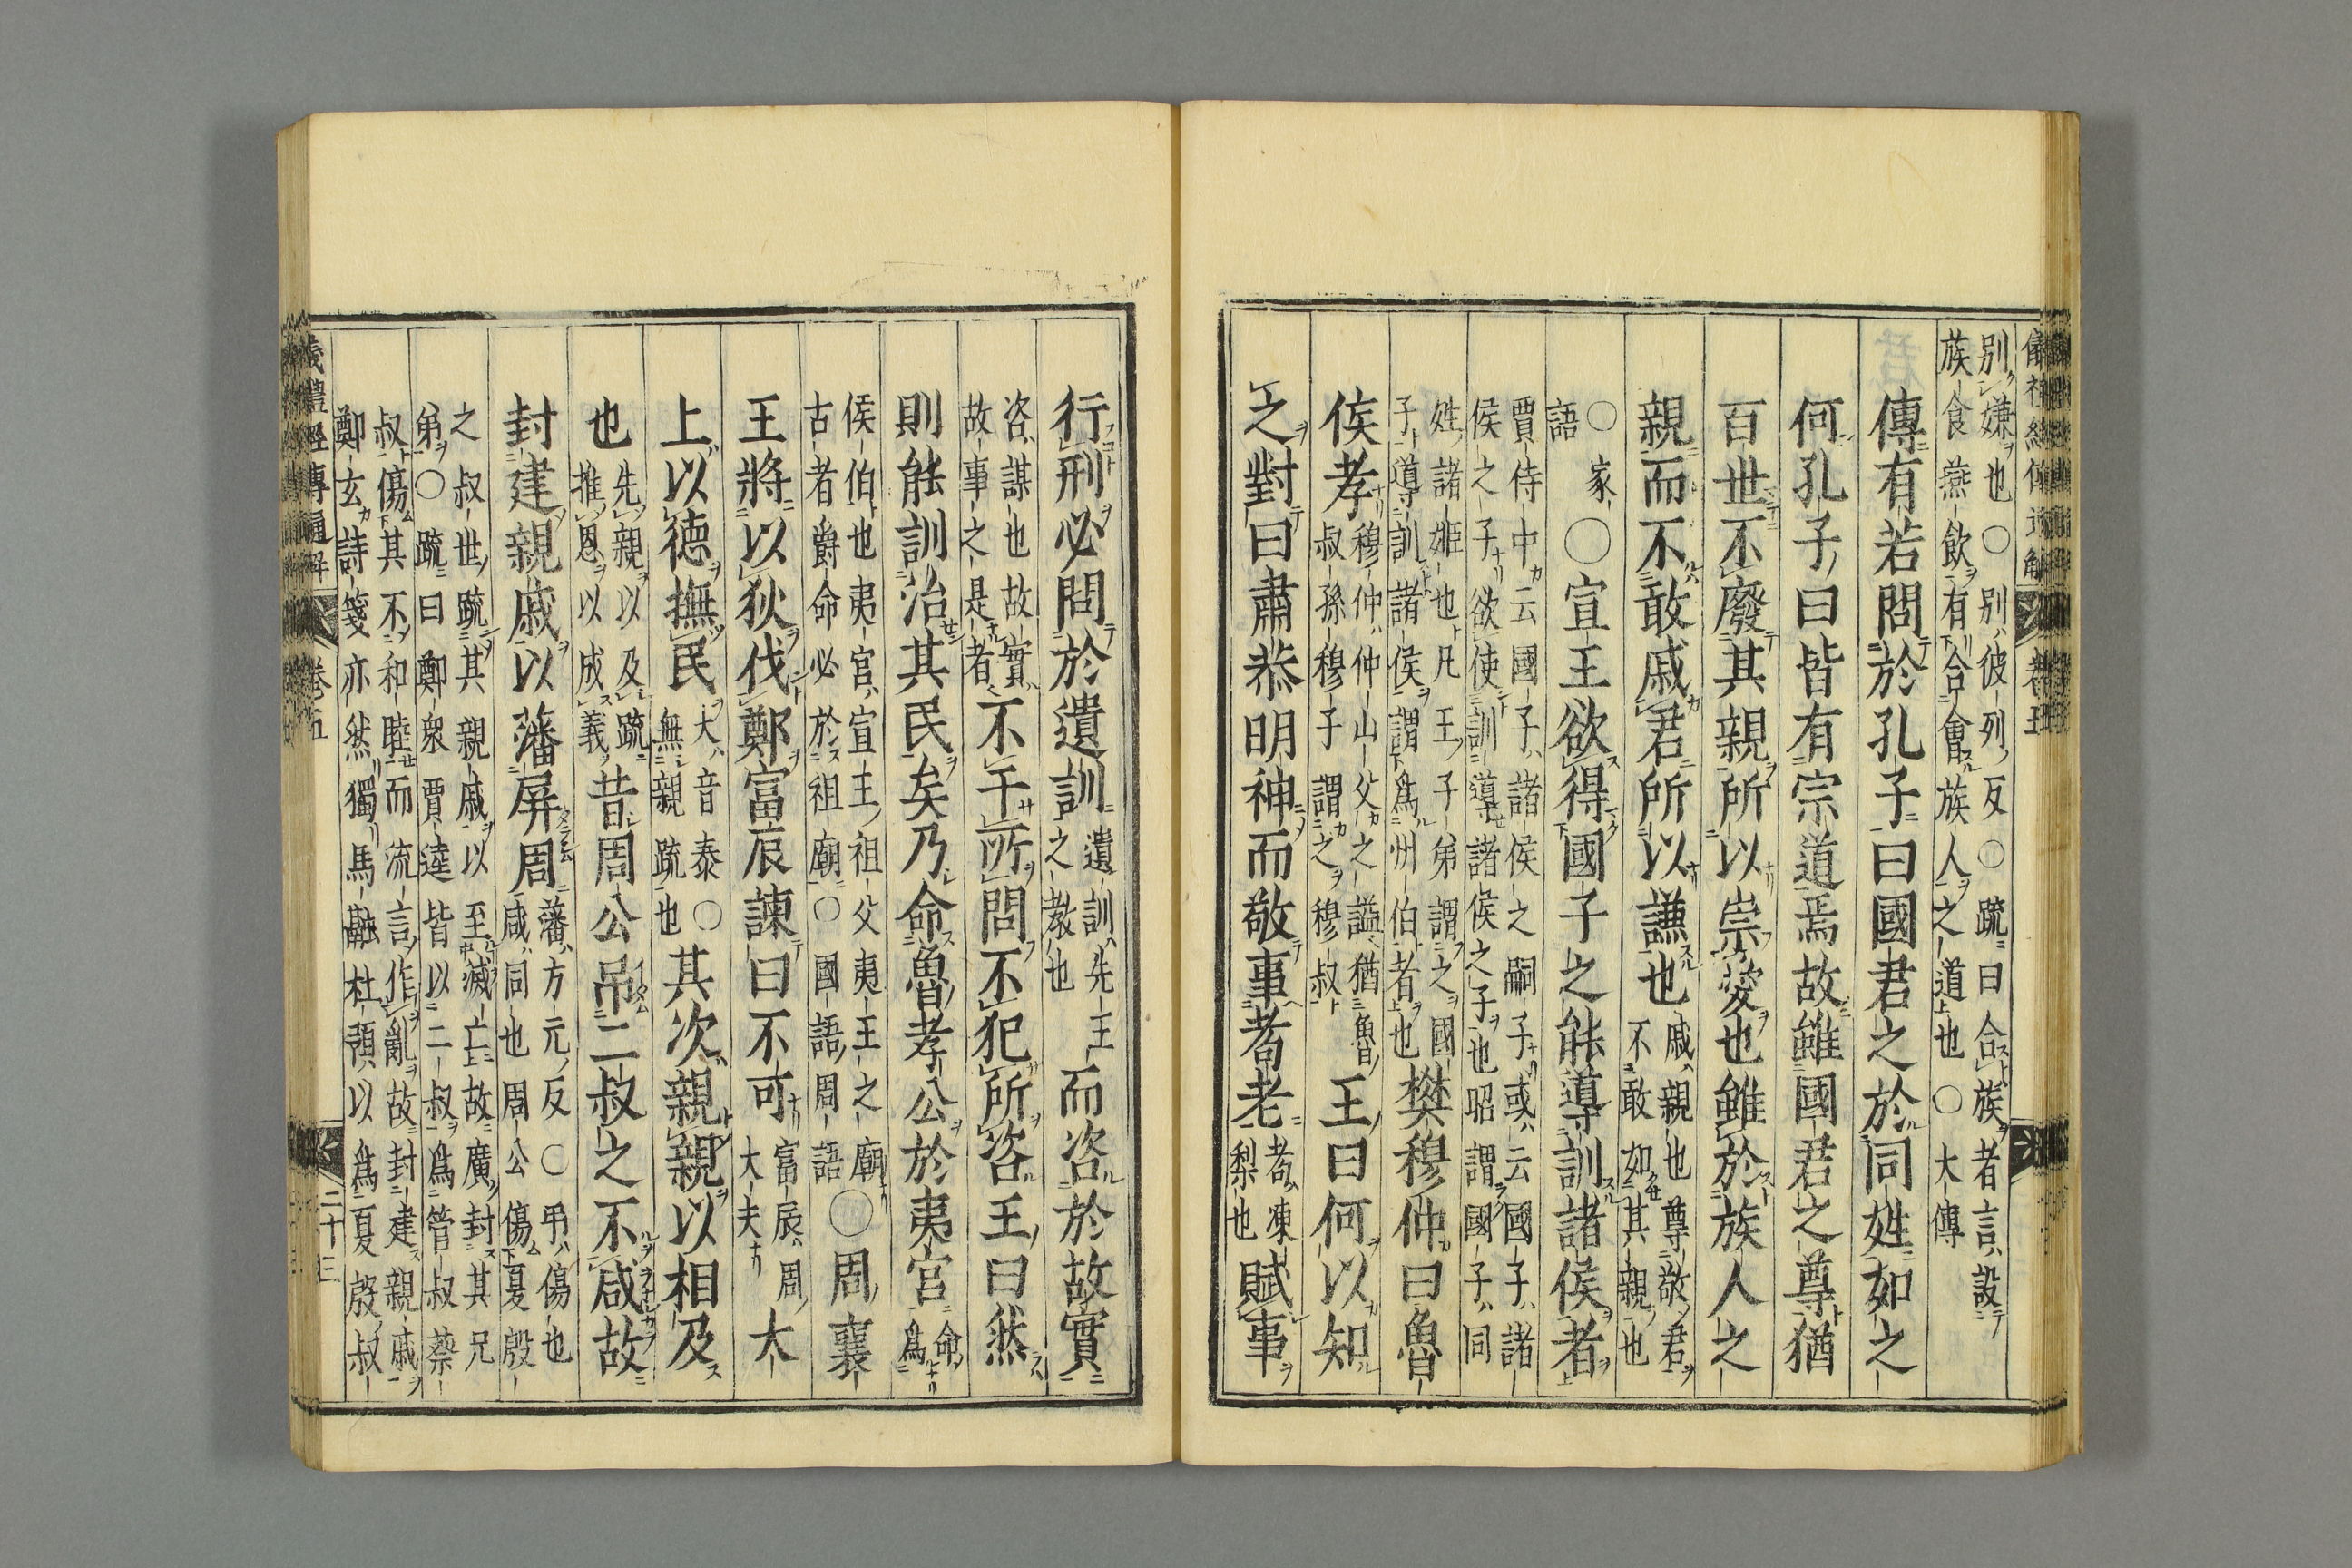 儀禮經傳通解 卷五
別嫌也○別彼列反○疏曰合族者言設
族食燕飲有合會族人之道也○大傳
傳有若問於孔子曰國君之於同姓如之
何孔子曰皆有宗道焉故雖國君之尊猶
百世不廢其親所以崇愛也雖於族人之
親而不敢戚君所以謙也戚親也尊敬君不敢如其親也
○家語○宣王欲得國子之能導訓諸侯者
賈侍中云國子諸侯之嗣子或云國子諸
侯之子欲使訓導諸侯之子也昭謂國子同
姓諸姬也凡王子弟謂之國子導訓諸侯謂爲州伯者也樊穆仲曰魯
侯孝穆仲仲山父之謚猶魯叔孫穆子謂之穆叔王曰何以知
之對曰肅恭明神而敬事耇老耇凍梨也賦事
行刑必問於遺訓遺訓先王之教也而咨於故實
咨謀也故實故事之是者不干所問不犯所咨王曰然
則能訓治其民矣乃命魯孝公於夷宮命爲
侯伯也夷宮宣王祖父夷王之廟古者爵命必於祖廟○國語周語○周襄
王將以狄伐鄭富辰諫曰不可富辰周大夫大
上以德撫民大音泰○無親疏也其次親親以相及
也先親以及疏推恩以成義昔周公吊二叔之不咸故
封建親戚以藩屏周藩方元反○弔傷也咸同也周公傷夏殷
之叔世疏其親戚以至滅亡故廣封其兄
弟○疏曰鄭衆賈逵皆以二叔爲管叔蔡
叔傷其不和睦而流言作亂故封建親戚
鄭玄詩箋亦然獨馬融杜預以爲夏殷叔
儀禮經傳通解 卷五 二十三